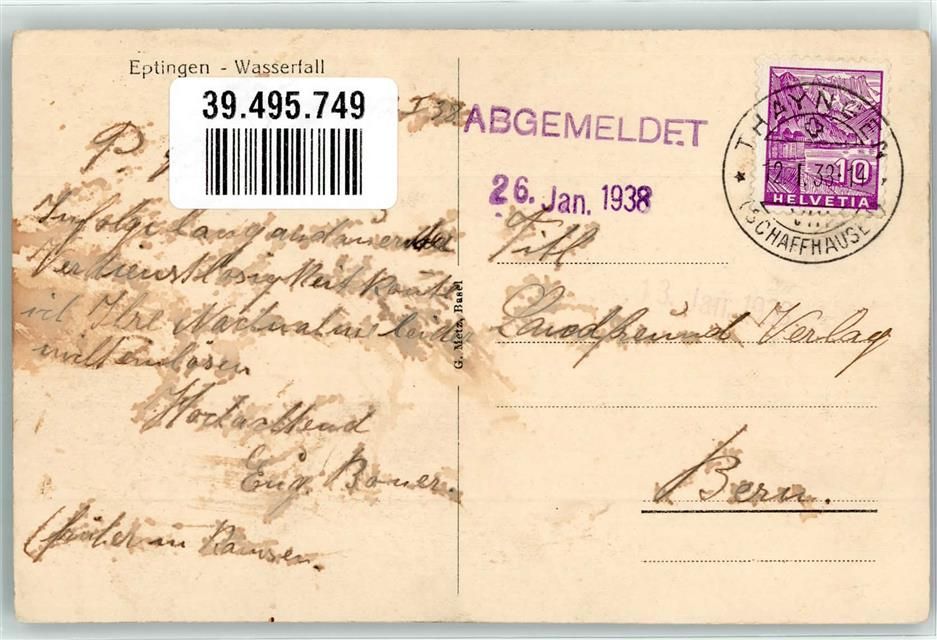 Eptingen - Wasserfall
39.495.749
P
Infolge langandauernder
Verdienstlosigkeit konnte
ich Ihre Nachnahme leider
nicht einlösen
Hochachtend
Eug. Boner.
(früher in Ramsen.
G. Metz, Basel
ABGEMELDET
26. Jan. 1938
THAYNGEN
12. I. 38 - 14
(SCHAFFHAUSEN)
10
HELVETIA
Titl
13. Jan. 1938
Landfreund Verlag
Bern.